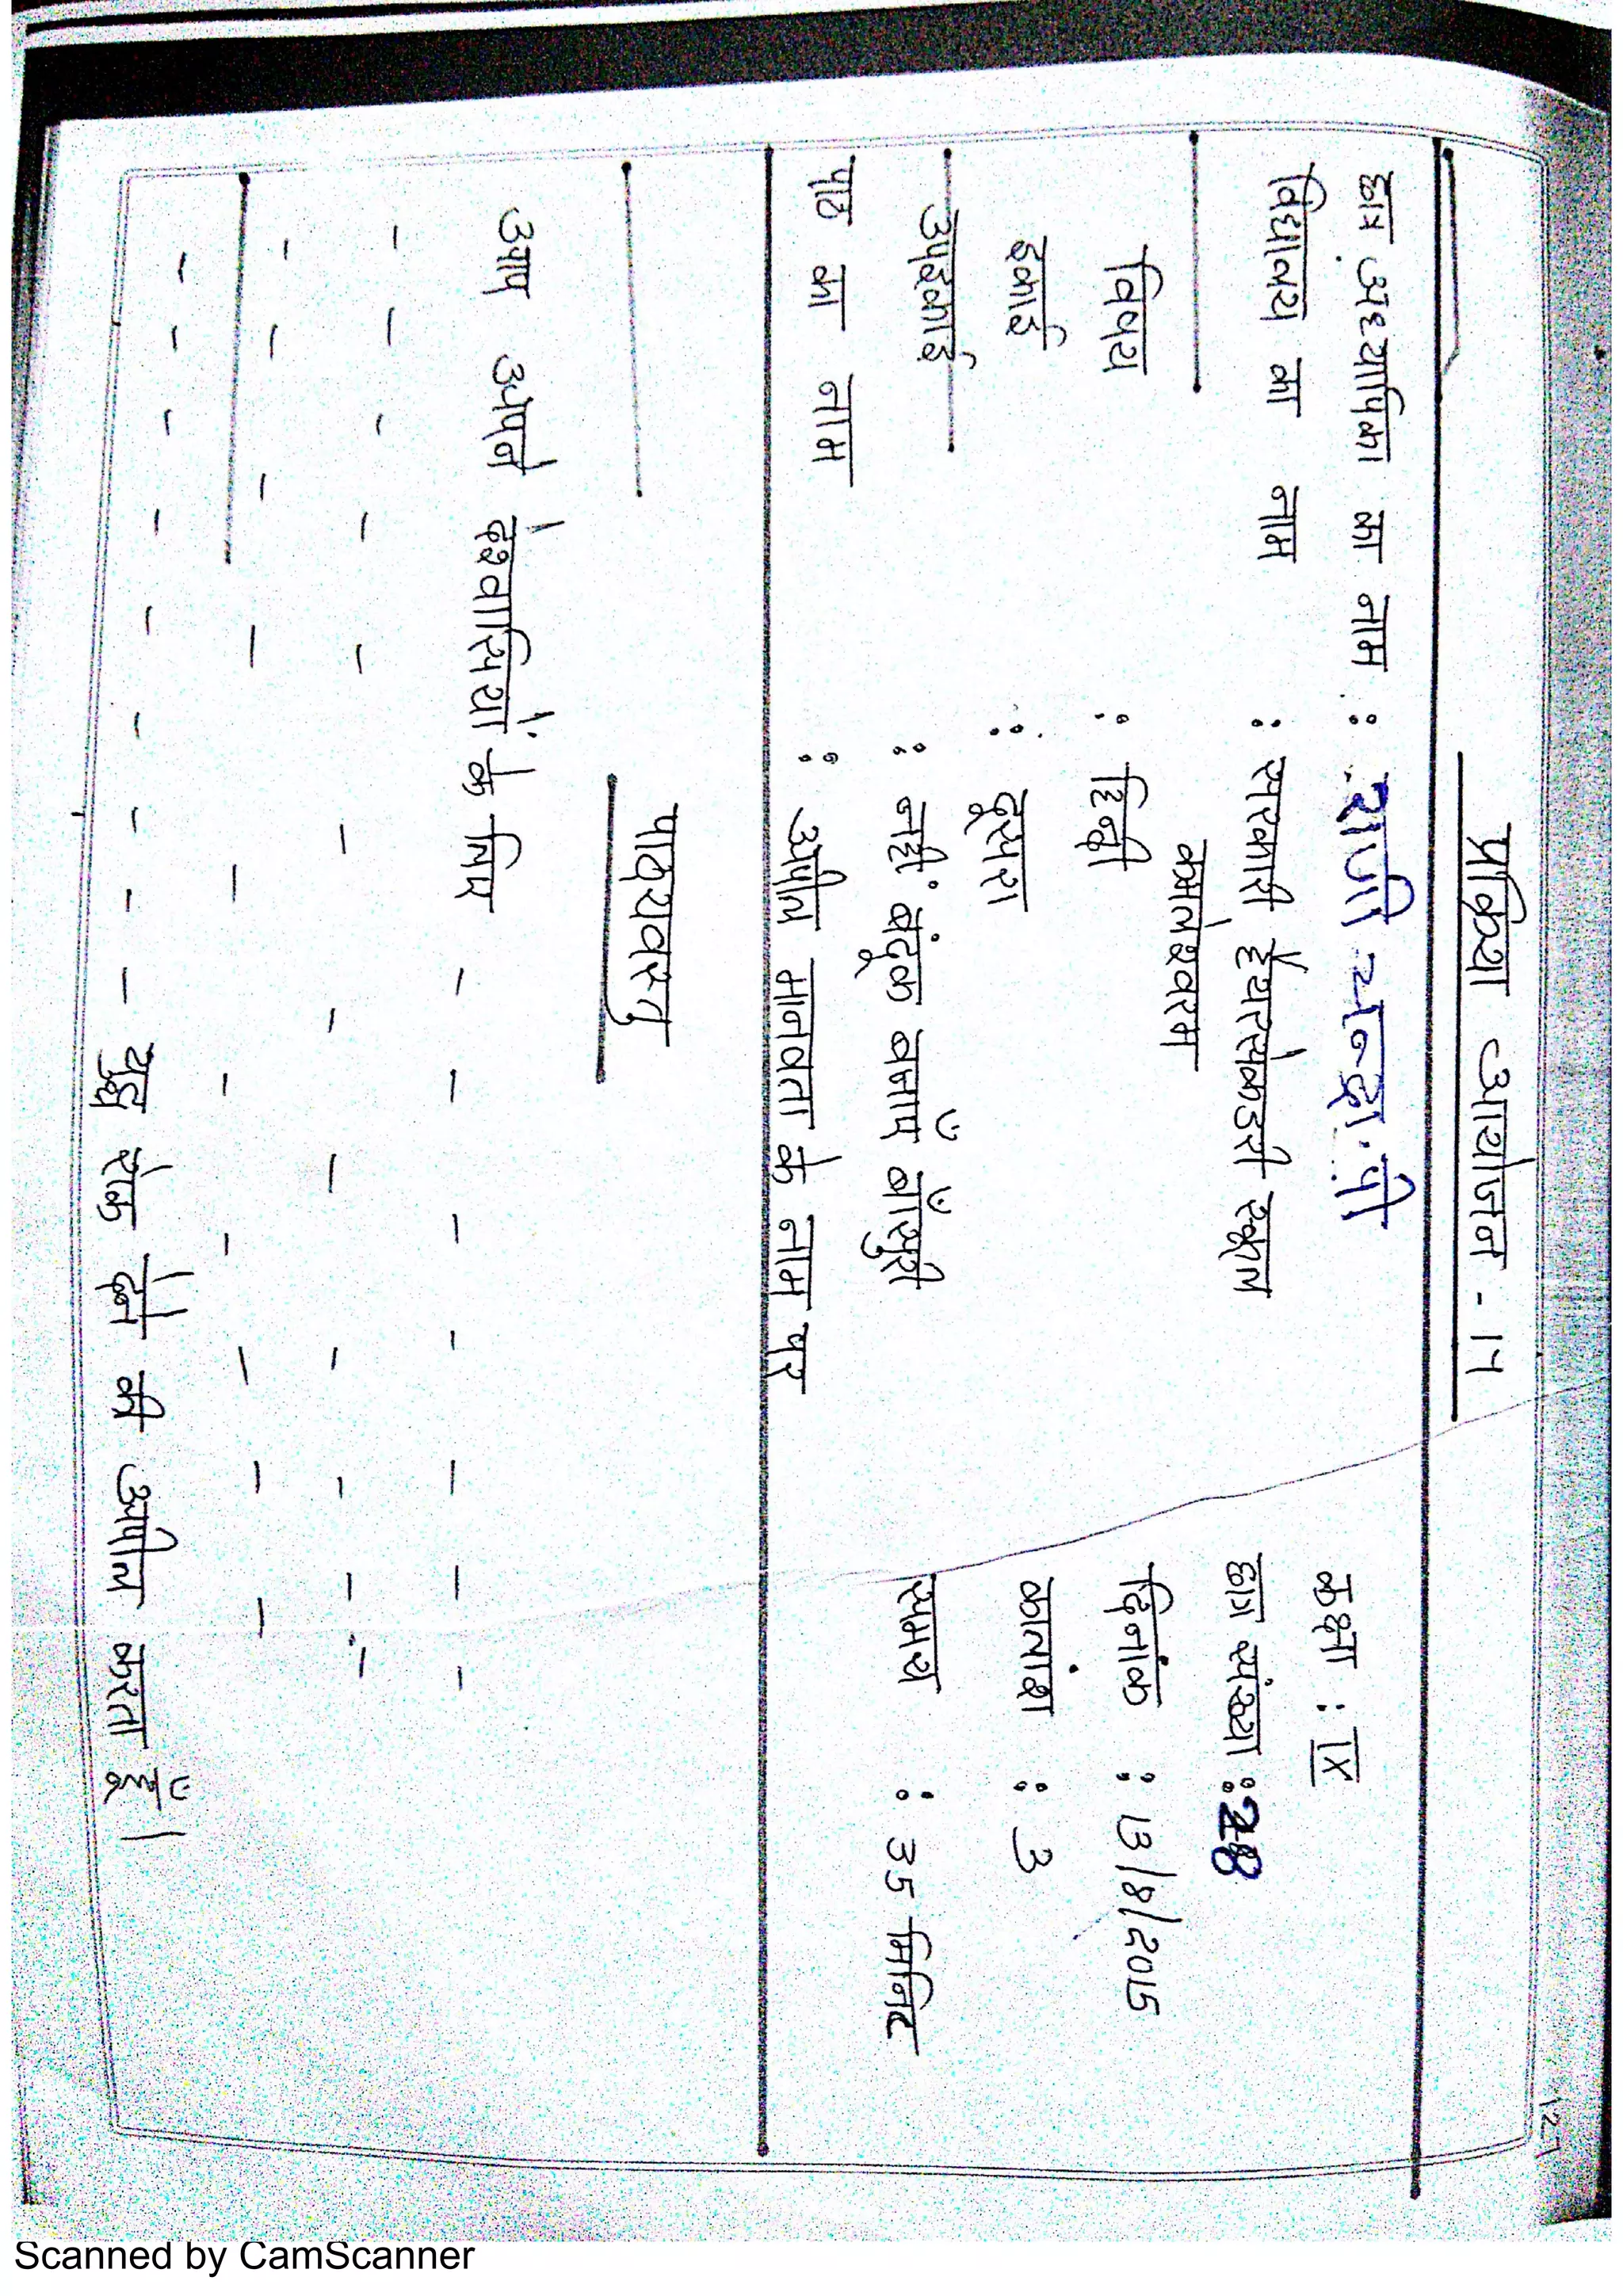 127
प्रक्रिया आयोजन - 14
छात्र अध्यापिका का नाम : राजी चन्द्रा. पी
कक्षा : IX
विद्यालय का नाम : सरकारी हैयरसेकडरी स्कूल
कमलेश्वरम
छात्र संख्या : 28
विषय : हिन्दी
दिनांक : 13/8/2015
इकाई : दूसरा
कालांश : 3
उपइकाई : नहीं बंदूक बनाएँ बाँसुरी
समय : 35 मिनिट
पाठ का नाम : अपील मानवता के नाम पर
पाठ्यवस्तु
आप अपने देशवासियों के लिए - - - - - -
- - - - - - - - - - - -
- - - - - - - - - -
- - - - - - - - युद्ध रोक देने की अपील करता हूँ।
Scanned by CamScanner